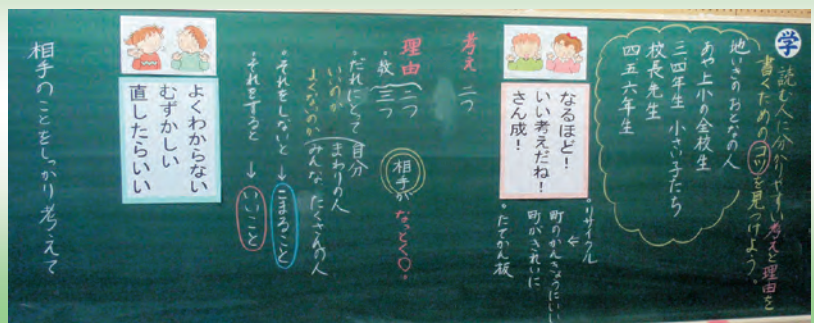 学
読む人に分かりやすい考えと理由を
書くためのコツを見つけよう。
地いきのおとなの人
あや上小の全校生
三四年生 小さい子たち
校長先生
四五六年生
なるほど!
いい考えだね!
さん成!
・リサイクル
←
町のかんきょうにいい
町がきれいに
・たてかん板
考え 二つ
理由 二つ
・数 三つ
相手がなっとく○。
だれにとって
いいのか
よくなるのか
自分
まわりの人
みんな たくさんの人
・それをしないと → こまること
・それをすると → いいこと
よくわからない
むずかしい
直したらいい
相手のことをしっかり考えて